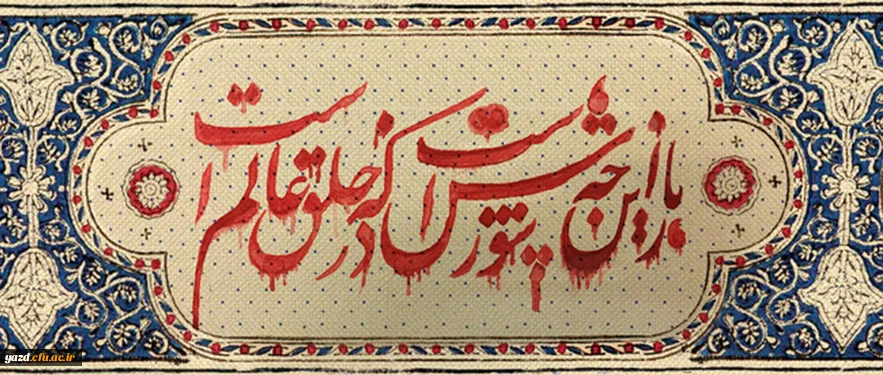 باز این چه شورش است که در خلق عالم است
yazd.cfu.ac.ir